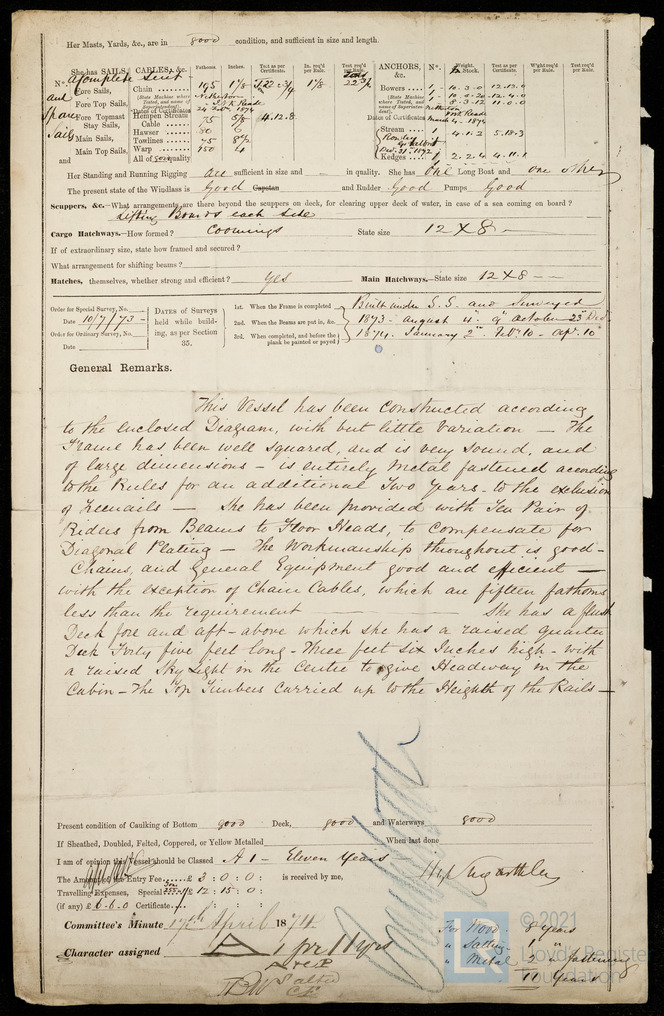 Her Masts, Yards, &c., are in good condition, and sufficient in size and length.
She has SAILS. CABLES, &c. Fathoms. Inches. Test as per Certificate. In. req'd per Rule. Test req'd per Rule. ANCHORS, &c. No. Weight. Ex. Stock. Test as per Certificate. W'ght req'd per Rule. Test req'd per Rule.
No. a Complete Suit
and Spare Sails
Fore Sails,
Fore Top Sails,
Fore Topmast Stay Sails,
Main Sails,
Main Top Sails,
and
Chain 195 1 7/8 1 7/8
(State Machine where Tested, and name of Superintendent).
Dates of Certificates
Hempen Stream Cable 75 5/8 4.12.8
Hawser 80 6
Towlines 75 8 1/2
Warp 950 4
All of good quality
Bowers 1 10.3.0 12.13.0
1 10.0.20 12.4.0
8.3.12 11.0.0
(State Machine where Tested, and name of Superintendent).
Netherton
Dates of Certificates
March 4. 1874
Stream 1 4.1.2 5.18.3
Dec. 31. 1872
Kedges 1 2.2.4 4.11.1
Her Standing and Running Rigging are sufficient in size and in quality. She has One Long Boat and one other
The present state of the Windlass is Good Capstan and Rudder Good Pumps Good
Scuppers, &c.—What arrangements are there beyond the scuppers on deck, for clearing upper deck of water, in case of a sea coming on board?
Lifting Boards each side
Cargo Hatchways.—How formed? Coomings State size 12 X 8
If of extraordinary size, state how framed and secured?
What arrangement for shifting beams?
Hatches, themselves, whether strong and efficient? Yes Main Hatchways.—State size 12 X 8
Order for Special Survey, No.
Date 10/7/73
Order for Ordinary Survey, No.
Date
DATES of Surveys held while building, as per Section 35.
1st. When the Frame is completed
2nd. When the Beams are put in, &c.
3rd. When completed, and before the plank be painted or payed
Built under S.S. and Surveyed
1873 - August 4" 9" October 23" Dec.
1874. January 2" Feb. 10 - Apr. 10"
General Remarks.
This Vessel has been constructed according
to the enclosed Diagram, with but little variation - The
Frame has been well squared, and is very sound, and
of large dimensions - is entirely metal fastened according
to the Rules for an additional Two Years - to the exclusion
of Treenails - She has been Provided with Ten Pair of
Riders from Beams to Floor Heads, to compensate for
Diagonal Plating - The Workmanship throughout is good -
Chains, and General Equipment good and efficient -
with the exception of Chain Cables, which are fifteen fathoms
less than the requirement - She has a flush
Deck fore and aft - above which she has a raised Quarter
Deck Forty five feet long - Three feet Six Inches high - with
a raised Sky Light in the Centre to give Headway in the
Cabin - The Top Timbers carried up to the Height of the Rails -
Present condition of Caulking of Bottom good Deck, good and Waterways good
If Sheathed, Doubled, Felted, Coppered, or Yellow Metalled When last done
I am of opinion this Vessel should be Classed A 1 - Eleven Years -
The Amount of the Entry Fee £ 3 : 0 : 0 : is received by me,
Special £ 12 : 15 : 0 :
Travelling Expenses, (if any) £ 6.6.0 Certificate
Committee's Minute 17th April 1874
Character assigned A 1 for 11 yrs
For Wood - 8 Years
" Salting - 1 "
" Metal 2 " fastening
11 Years
LR
© 2021
Lloyd's Register
Foundation